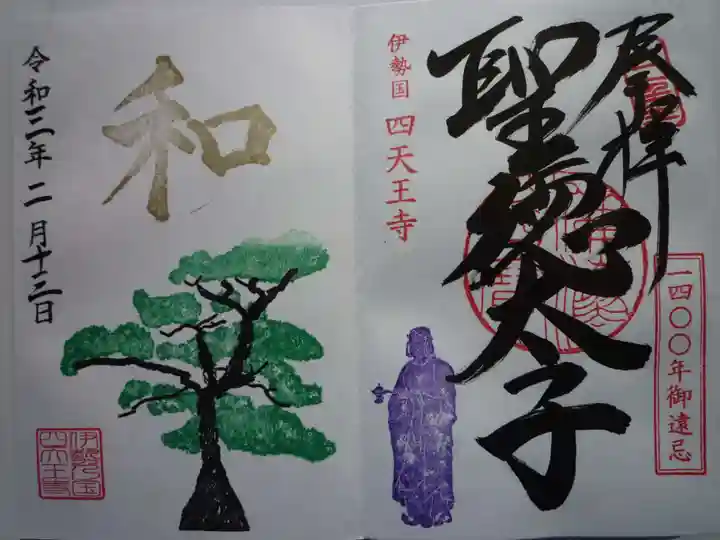 奉拝
聖徳太子
伊勢国 四天王寺
一四〇〇年御遠忌
和
令和三年二月十三日
伊勢国
四天王寺